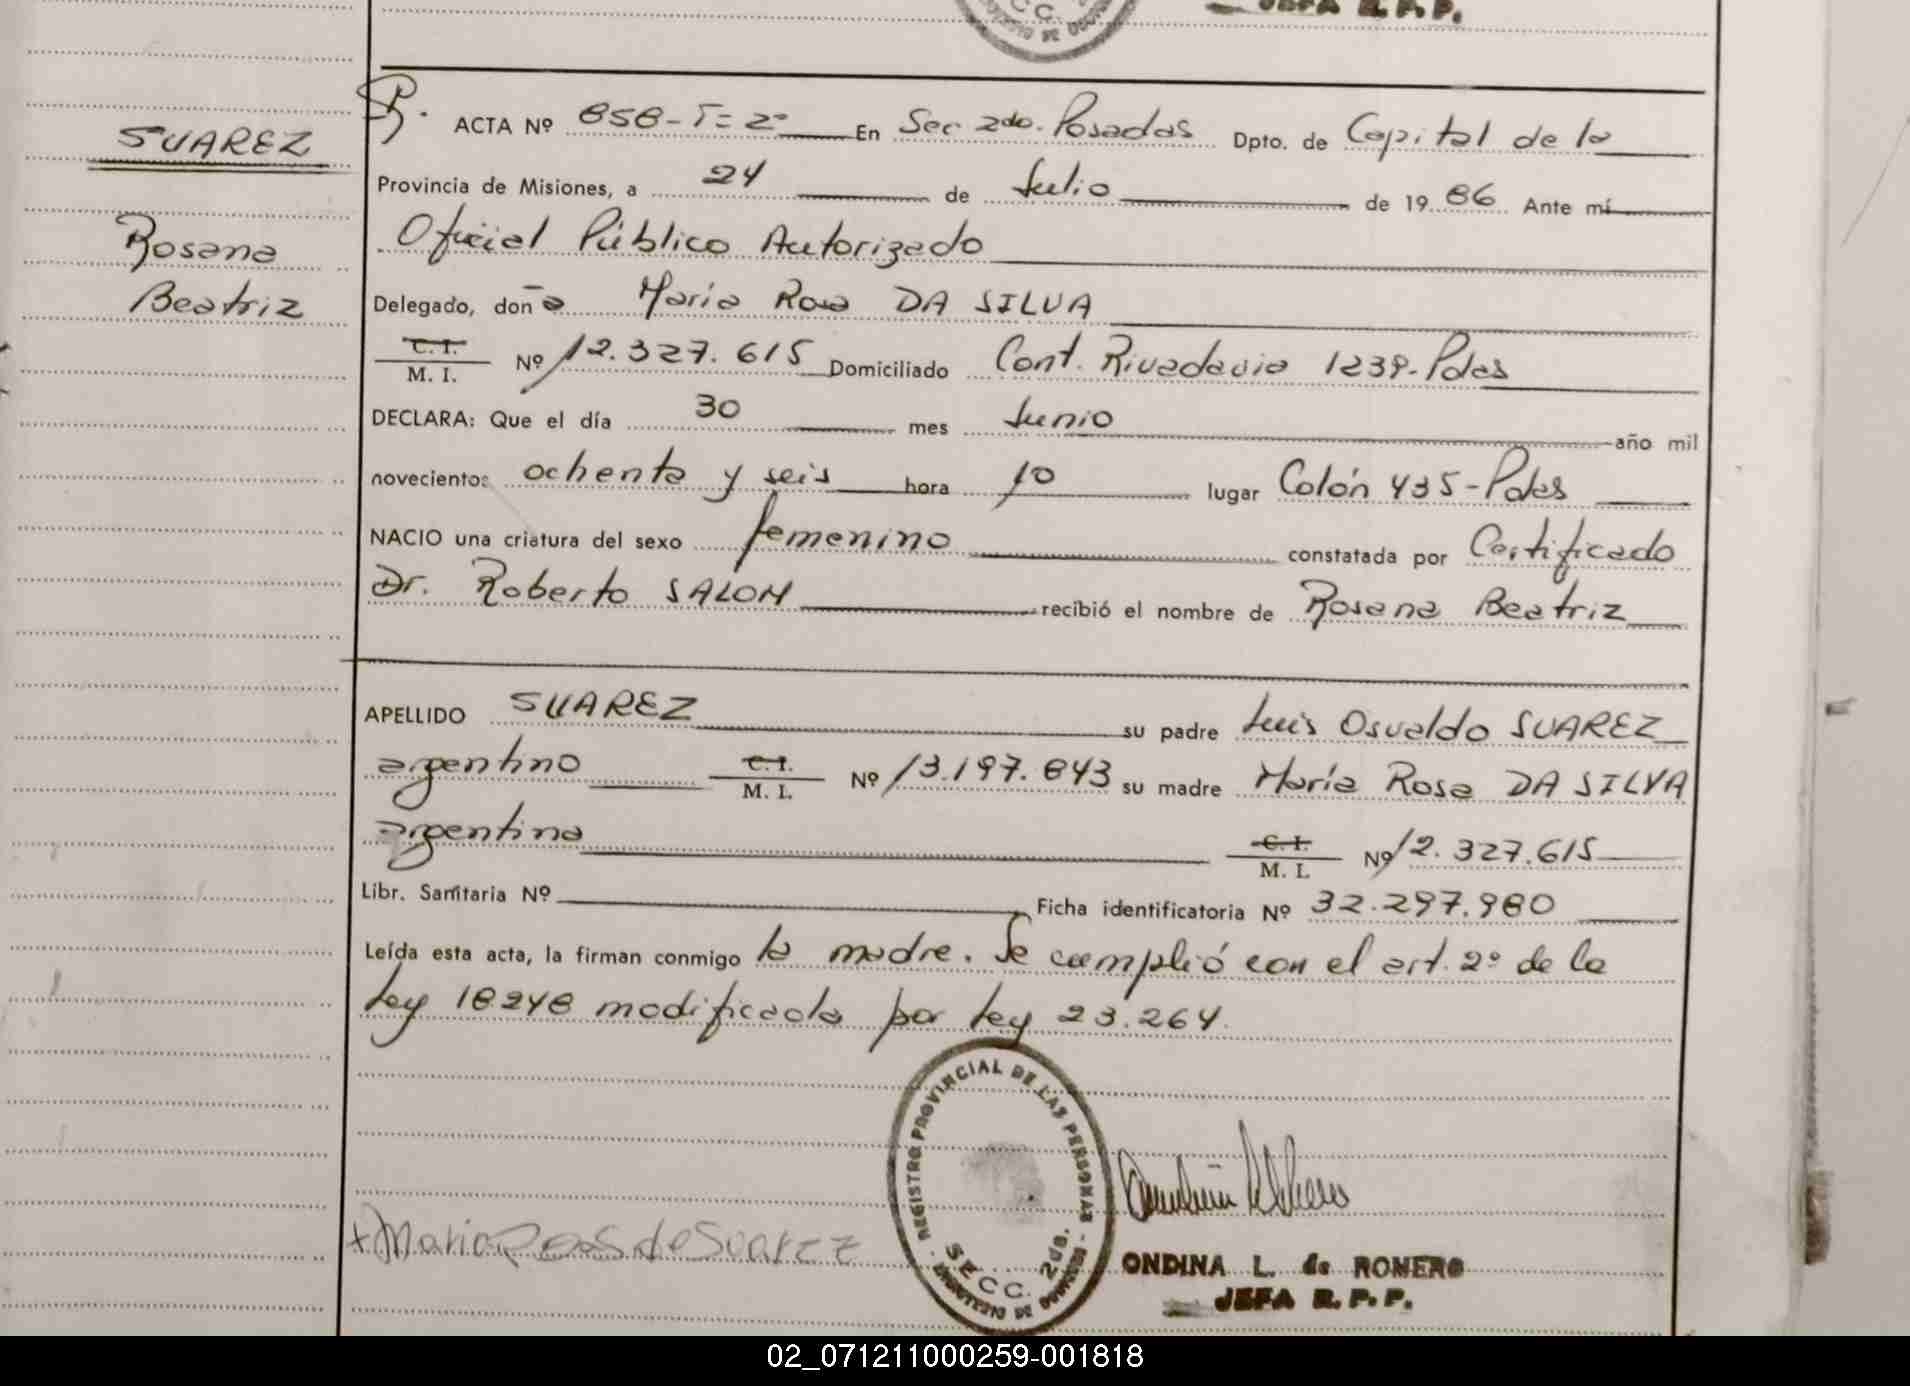 JEFA R.P.P.
SUAREZ
Rosana
Beatriz
ACTA Nº 858-T=2º En Sec 2do. Posadas Dpto. de Capital de la
Provincia de Misiones, a 24 de Julio de 1986 Ante mí
Oficial Público Autorizado
Delegado, doña María Rosa DA SILVA
C.I. M. I. Nº 12.327.615 Domiciliado Cont. Rivadavia 1239-Pdas
DECLARA: Que el día 30 mes Junio año mil
novecientos ochenta y seis hora 10 lugar Colón 435-Pdas
NACIO una criatura del sexo femenino constatada por Certificado
Dr. Roberto SALOM recibió el nombre de Rosana Beatriz
APELLIDO SUAREZ su padre Luis Osvaldo SUAREZ
argentino C.I. M. I. Nº 13.197.843 su madre María Rosa DA SILVA
argentina C.I. M. I. Nº 12.327.615
Libr. Sanitaria Nº Ficha identificatoria Nº 32.297.980
Leída esta acta, la firman conmigo la madre. Se cumplió con el art. 2º de la
Ley 18248 modificada por Ley 23.264.
REGISTRO PROVINCIAL DE LAS PERSONAS
SECC. 2da.
María Rosa S de Suarez
ONDINA L. de ROMERO
JEFA R.P.P.
02_071211000259-001818